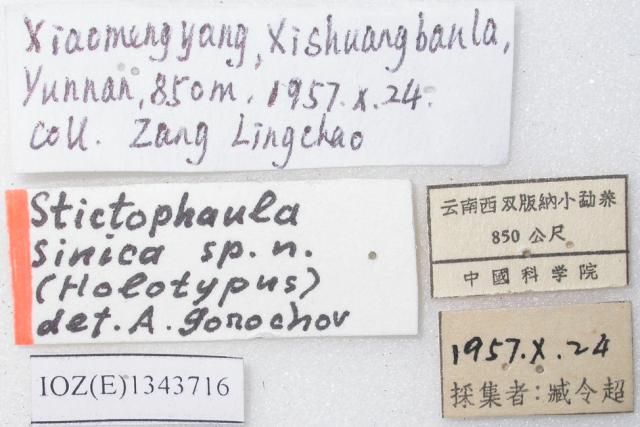 Xiaomengyang, Xishuangbanla,
Yunnan, 850m. 1957.x.24.
coll. Zang Lingchao
Stictophaula
sinica sp. n.
(Holotypus)
det. A. Gorochov
IOZ(E)1343716
云南西双版納小勐养
850 公尺
中國科学院
1957.X.24
採集者:臧令超